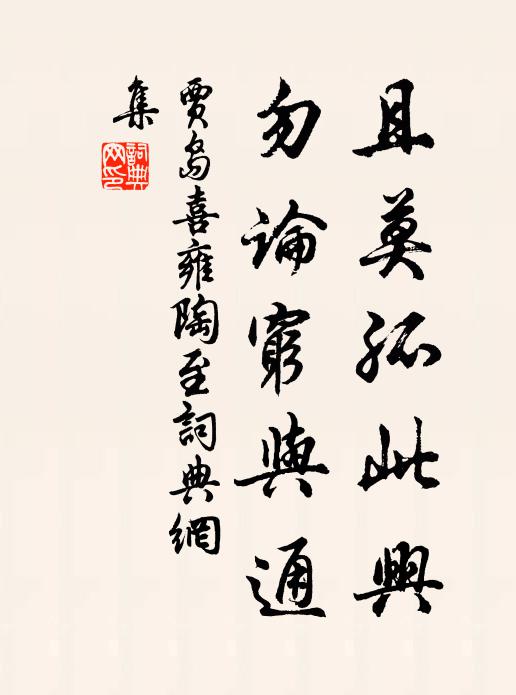 且莫孤此興
勿論窮與通
賈島喜雍陶至詞典網
集
詞典網印